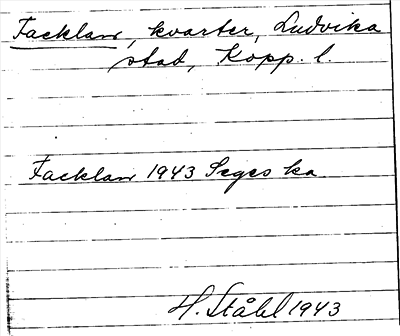 Facklan, kvarter, Ludvika
stad, Kopp. l.
Facklan 1943 Seges ka
H. Ståhl 1943